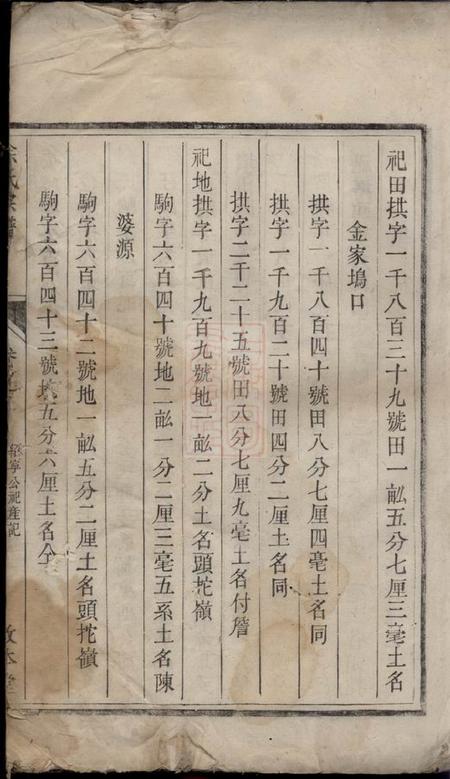 祀田拱字一千八百三十九號田一畆五分七厘三毫土名
金家塢口
拱字一千八百四十號田八分七厘四毫土名同
拱字一千九百二十號田四分二厘土名同
拱字二千二十五號田八分七厘九毫土名付簷
祀地拱字一千九百九號地一畆二分土名頭拕嶺
駒字六百四十號地二畆一分二厘三毫五系土名陳
婆源
駒字六百四十二號地一畆五分二厘土名頭拕嶺
駒字六百四十三號地五分六厘土名仝
氏宗譜
寧公祀産記
敦本堂